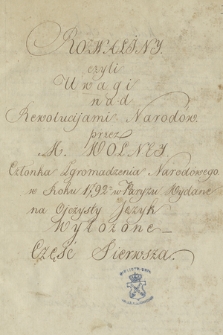 ROZWALINY
czyli
Uwagi
nad
Rewolucijami Narodów
przez
M. WOLNEY
Członka Zgromadzenia Narodowego
w Roku 1792 w Paryżu Wydane
na Oyczysty Język
Wyłożone_
Część Pierwsza.